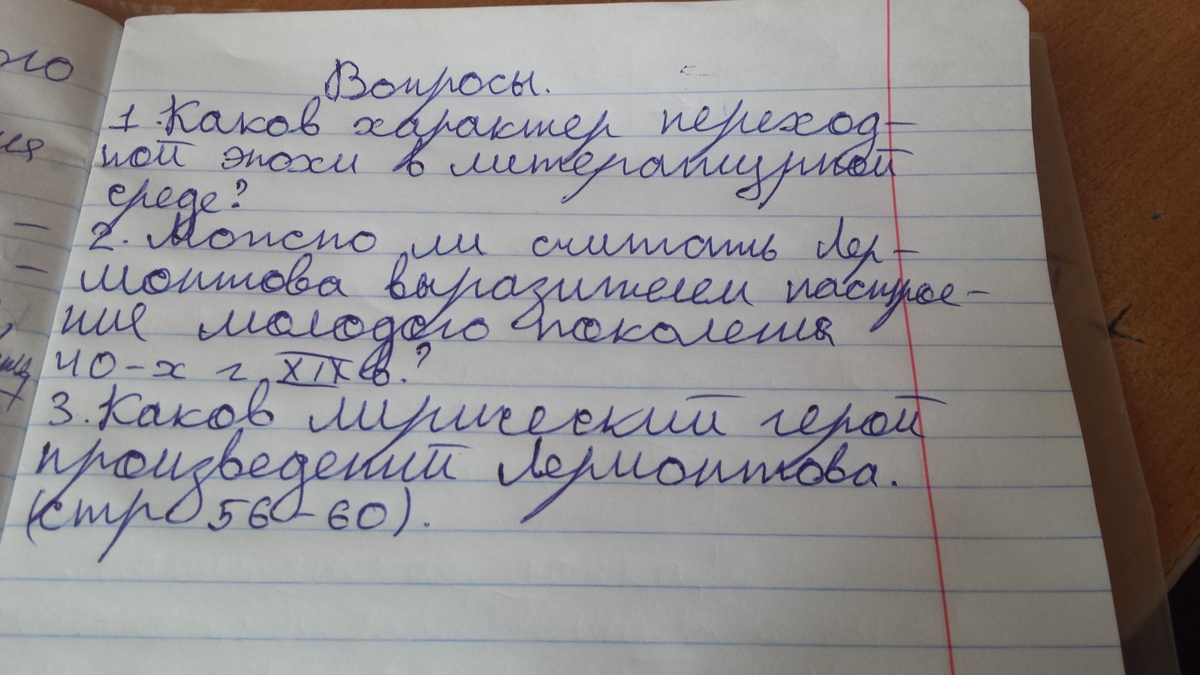 ого
Вопросы.
1. Каков характер переход-
ной эпохи в литературной
среде?
2. Можно ли считать Лер-
монтова выразителем настрое-
ние молодого поколения
40-х г. XIX в.?
3. Каков лирический герой
произведений Лермонтова.
(стр 56-60).